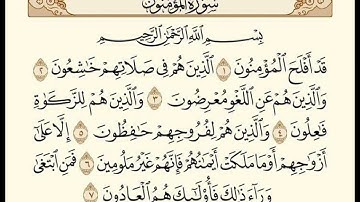 سُورَةُ المُؤْمِنُونَ
بِسْمِ اللَّهِ الرَّحْمَٰنِ الرَّحِيمِ
قَدْ أَفْلَحَ الْمُؤْمِنُونَ ١ الَّذِينَ هُمْ فِي صَلَاتِهِمْ خَاشِعُونَ ٢
وَالَّذِينَ هُمْ عَنِ اللَّغْوِ مُعْرِضُونَ ٣ وَالَّذِينَ هُمْ لِلزَّكَوٰةِ
فَٰعِلُونَ ٤ وَالَّذِينَ هُمْ لِفُرُوجِهِمْ حَٰفِظُونَ ٥ إِلَّا عَلَىٰ
أَزْوَاجِهِمْ أَوْ مَا مَلَكَتْ أَيْمَانُهُمْ فَإِنَّهُمْ غَيْرُ مَلُومِينَ ٦ فَمَنِ ابْتَغَىٰ
وَرَآءَ ذَٰلِكَ فَأُولَٰئِكَ هُمُ الْعَادُونَ ٧